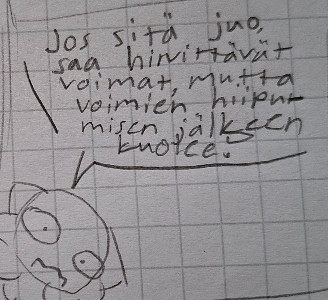 Jos sitä juo,
saa hirvittävät
voimat, mutta
voimien hiipu-
misen jälkeen
kuolee!